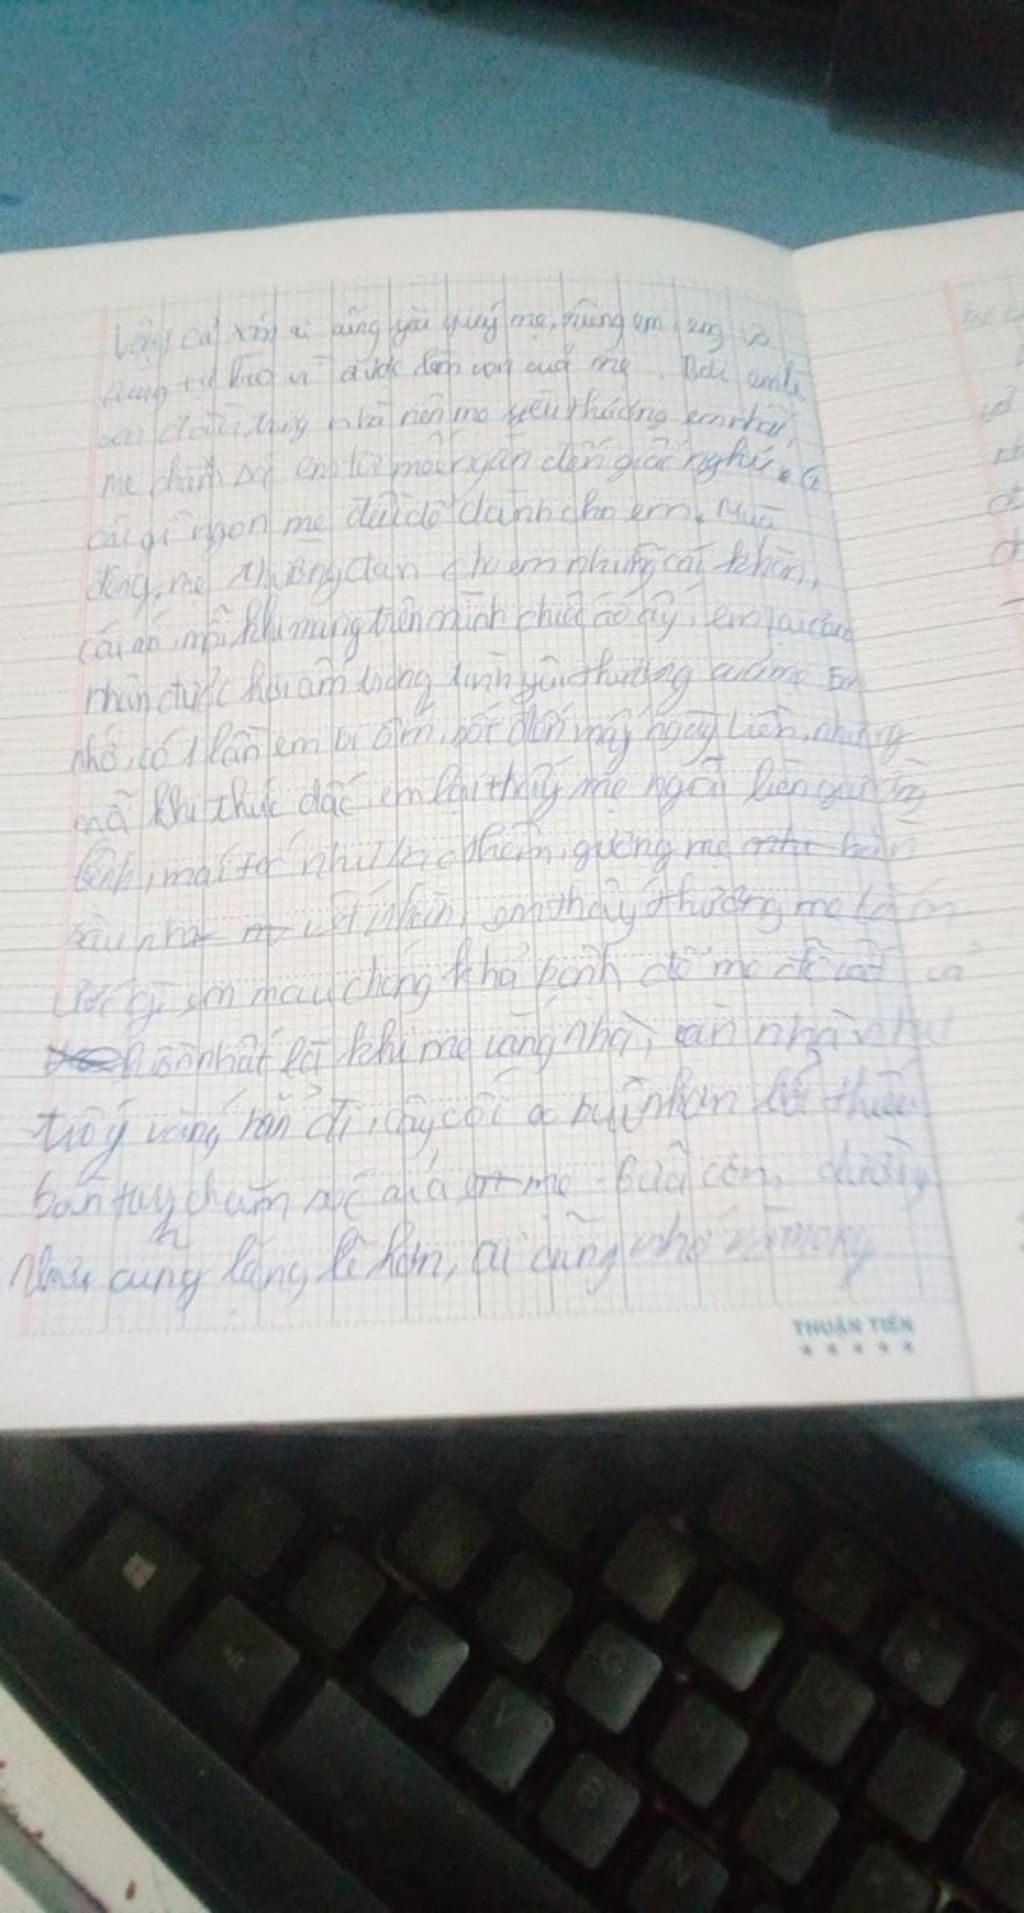 ca xin ai cũng yêu quý mẹ, riêng em, em vô
cùng tự hào vì được làm con của mẹ. Bởi em là
con trong nhà nên mẹ yêu thương em nhất,
mẹ chăm em từ miếng ăn đến giấc ngủ. Có
cái gì ngon mẹ đều để dành cho em. Mùa
đông, mẹ thường đan cho em những cái khăn,
cái áo, mỗi khi mang trên mình chiếc áo ấy, em lại cảm
nhận được hơi ấm trong tình yêu thương của mẹ. Em
nhớ, có 1 lần em bị ốm, sốt đến mấy ngày liền, nhưng
mỗi khi thức dậy em lại thấy mẹ ngồi bên giường
bệnh, mái tóc như bạc thêm, gương mẹ
sâu em thấy thương mẹ
ước gì em mau chóng khỏi bệnh để mẹ đỡ vất vả
nhất là khi mẹ vắng nhà, căn nhà như
trống vắng hẳn đi, cây cối buồn hơn bởi thiếu
bàn tay chăm sóc của mẹ. Bữa cơm, dường
như cũng lặng lẽ hơn, ai cũng nhớ
THUẬN TIẾN